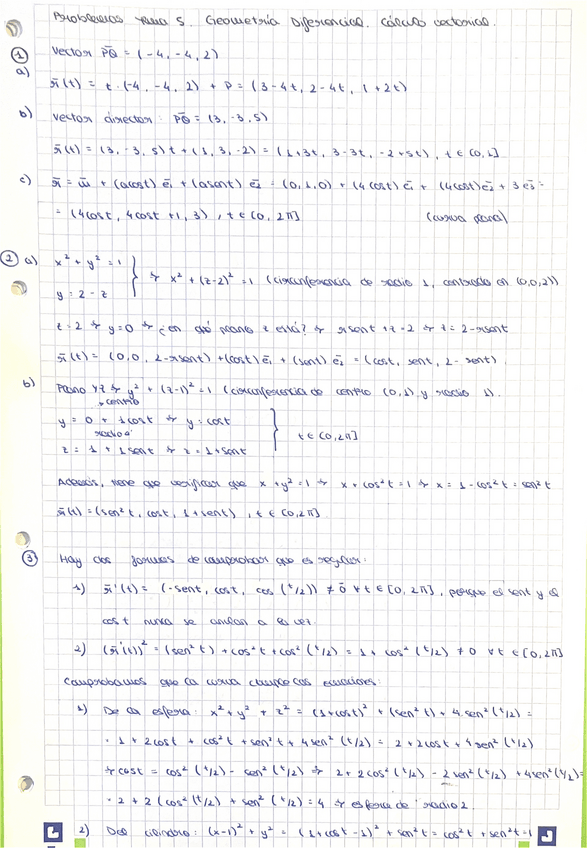 Problemas Tema 5. Geometría Diferencial. Cálculo vectorial.
① Vector P̄Q = (-4, -4, 2)
a)
r̄(t) = t·(-4, -4, 2) + P = (3-4t, 2-4t, 1+2t)
b) Vector director: P̄Q = (3, -3, 5)
r̄(t) = (3, -3, 5)t + (1, 3, -2) = (1+3t, 3-3t, -2+5t), t ∈ [0, 1]
c) r̄ = ū + (a cost) ē₁ + (a sent) ē₂ = (0, 1, 0) + (4 cost) ē₁ + (4 cost) ē₂ + 3 ē₃ =
= (4cost, 4cost +1, 3), t ∈ [0, 2π] (curva plana)
② a) x² + y² = 1
y = 2 - z } → x² + (z-2)² = 1 (circunferencia de radio 1, centrada en (0,0,2))
z = 2 → y = 0 → ¿en qué plano z está? → r sent + z = 2 → z = 2 - r sent
r̄(t) = (0, 0, 2-r sent) + (cost) ē₁ + (sent) ē₂ = (cost, sent, 2-sent).
b) Plano YZ → y² + (z-1)² = 1 (circunferencia de centro (0,1) y radio 1).
centro
y = 0 + 1 cost → y = cost
radio
z = 1 + 1 sent → z = 1 + sent } t ∈ [0, 2π]
Además, tiene que verificar que x + y² = 1 → x + cos² t = 1 → x = 1 - cos² t = sen² t
r̄(t) = (sen² t, cost, 1+sent), t ∈ [0, 2π]
③ Hay dos formas de comprobar que es regular:
1) r̄'(t) = (-sent, cost, cos (t/2)) ≠ 0̄ ∀ t ∈ [0, 2π], porque el sent y el
cost nunca se anulan a la vez.
2) (r̄'(t))² = (sen² t) + cos² t + cos² (t/2) = 1 + cos² (t/2) ≠ 0 ∀ t ∈ [0, 2π]
Comprobamos que la curva cumple las ecuaciones:
1) De la esfera: x² + y² + z² = (1+cost)² + (sen² t) + 4 sen² (t/2) =
= 1 + 2cost + cos² t + sen² t + 4 sen² (t/2) = 2 + 2cost + 4 sen² (t/2)
→ cost = cos² (t/2) - sen² (t/2) → 2 + 2cos² (t/2) - 2 sen² (t/2) + 4sen² (t/2) =
= 2 + 2 (cos² (t/2) + sen² (t/2) = 4 → esfera de radio 2.
2) Del cilindro: (x-1)² + y² = (1+cost -1)² + sen² t = cos² t + sen² t = 1